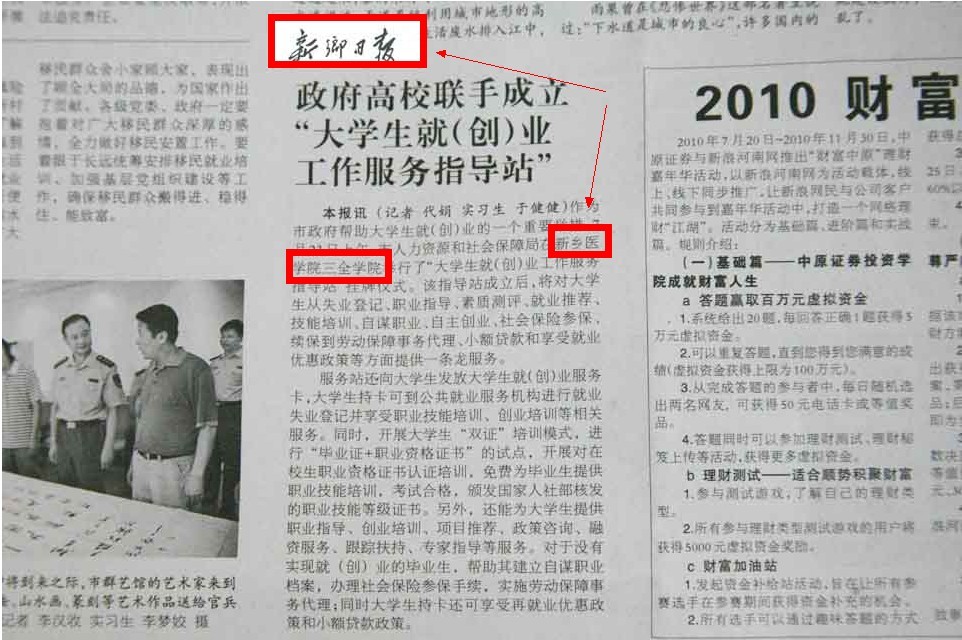 法追究责任。
移民群众会小家顾大家，表现出
了顾全大局的品德，为国家作出
了贡献。各级党委、政府一定要
抱着对广大移民群众深厚的感
情，全力做好移民安置工作。要
着眼于长远统筹安排移民就业培
训、加强基层党组织建设等工
作，确保移民群众搬得进、稳得
住、能致富。
将到来之际，市群艺馆的艺术家来到
、山水画、篆刻等艺术作品送给官兵
记者 李汉收 实习生 李梦姣 摄
利用城市地形的高
活废水排入江中，
新乡日报
政府高校联手成立
“大学生就(创)业
工作服务指导站”
本报讯 (记者 代娟 实习生 于健健)作为
市政府帮助大学生就(创)业的一个重要
人力资源和社会保障局在新乡医
学院三全学院举行了“大学生就(创)业工作服务
指导站”挂牌仪式。该指导站成立后，将对大学
生从失业登记、职业指导、素质测评、就业推荐、
技能培训、自谋职业、自主创业、社会保险参保、
续保到劳动保障事务代理、小额贷款和享受就业
优惠政策等方面提供一条龙服务。
服务站还向大学生发放大学生就(创)业服务
卡，大学生持卡可到公共就业服务机构进行就业
失业登记并享受职业技能培训、创业培训等相关
服务。同时，开展大学生“双证”培训模式，进
行“毕业证+职业资格证书”的试点，开展对在
校生职业资格证书认证培训，免费为毕业生提供
职业技能培训，考试合格，颁发国家人社部核发
的职业技能等级证书。另外，还能为大学生提供
职业指导、创业培训、项目推荐、政策咨询、融
资服务、跟踪扶持、专家指导等服务。对于没有
实现就（创）业的毕业生，帮助其建立自谋职业
档案，办理社会保险参保手续，实施劳动保障事
务代理；同时大学生持卡还可享受再就业优惠政
策和小额贷款政策。
雨果曾在《悲惨世界》这部名著里说
过：“下水道是城市的良心”，许多国内的
乱了。
2010 财富
2010年7月20日~2010年11月30日，中
原证券与新浪河南网推出“财富中原”理财
嘉年华活动，以新浪河南网为活动载体，线
上、线下同步推广，让新浪网民与公司客户
共同参与到嘉年华活动中，打造一个网络理
财“江湖”。活动分为基础篇、进阶篇和实战
篇。规则介绍：
(一)基础篇——中原证券投资学
院成就财富人生
a 答题赢取百万元虚拟资金
1.系统给出20题，每回答正确1题获得5
万元虚拟资金。
2.可以重复答题，直到您得到您满意的成
绩(虚拟资金获得上限为100万元)。
3.从完成答题的参与者中，每日随机选
出两名网友，可获得50元电话卡或等值奖
品。
4.答题同时可以参加理财测试、理财秘
笈上传等活动，获得更多虚拟资金。
b 理财测试——适合顺势积聚财富
1.参与测试游戏，了解自己的理财类
型。
2.所有参与理财类型测试游戏的用户将
获得5000元虚拟资金奖励。
c 财富加油站
1.发起资金补给站活动，旨在让所有参
赛选手在参赛期间获得资金补充的机会。
2.所有选手可以通过趣味答题的方式